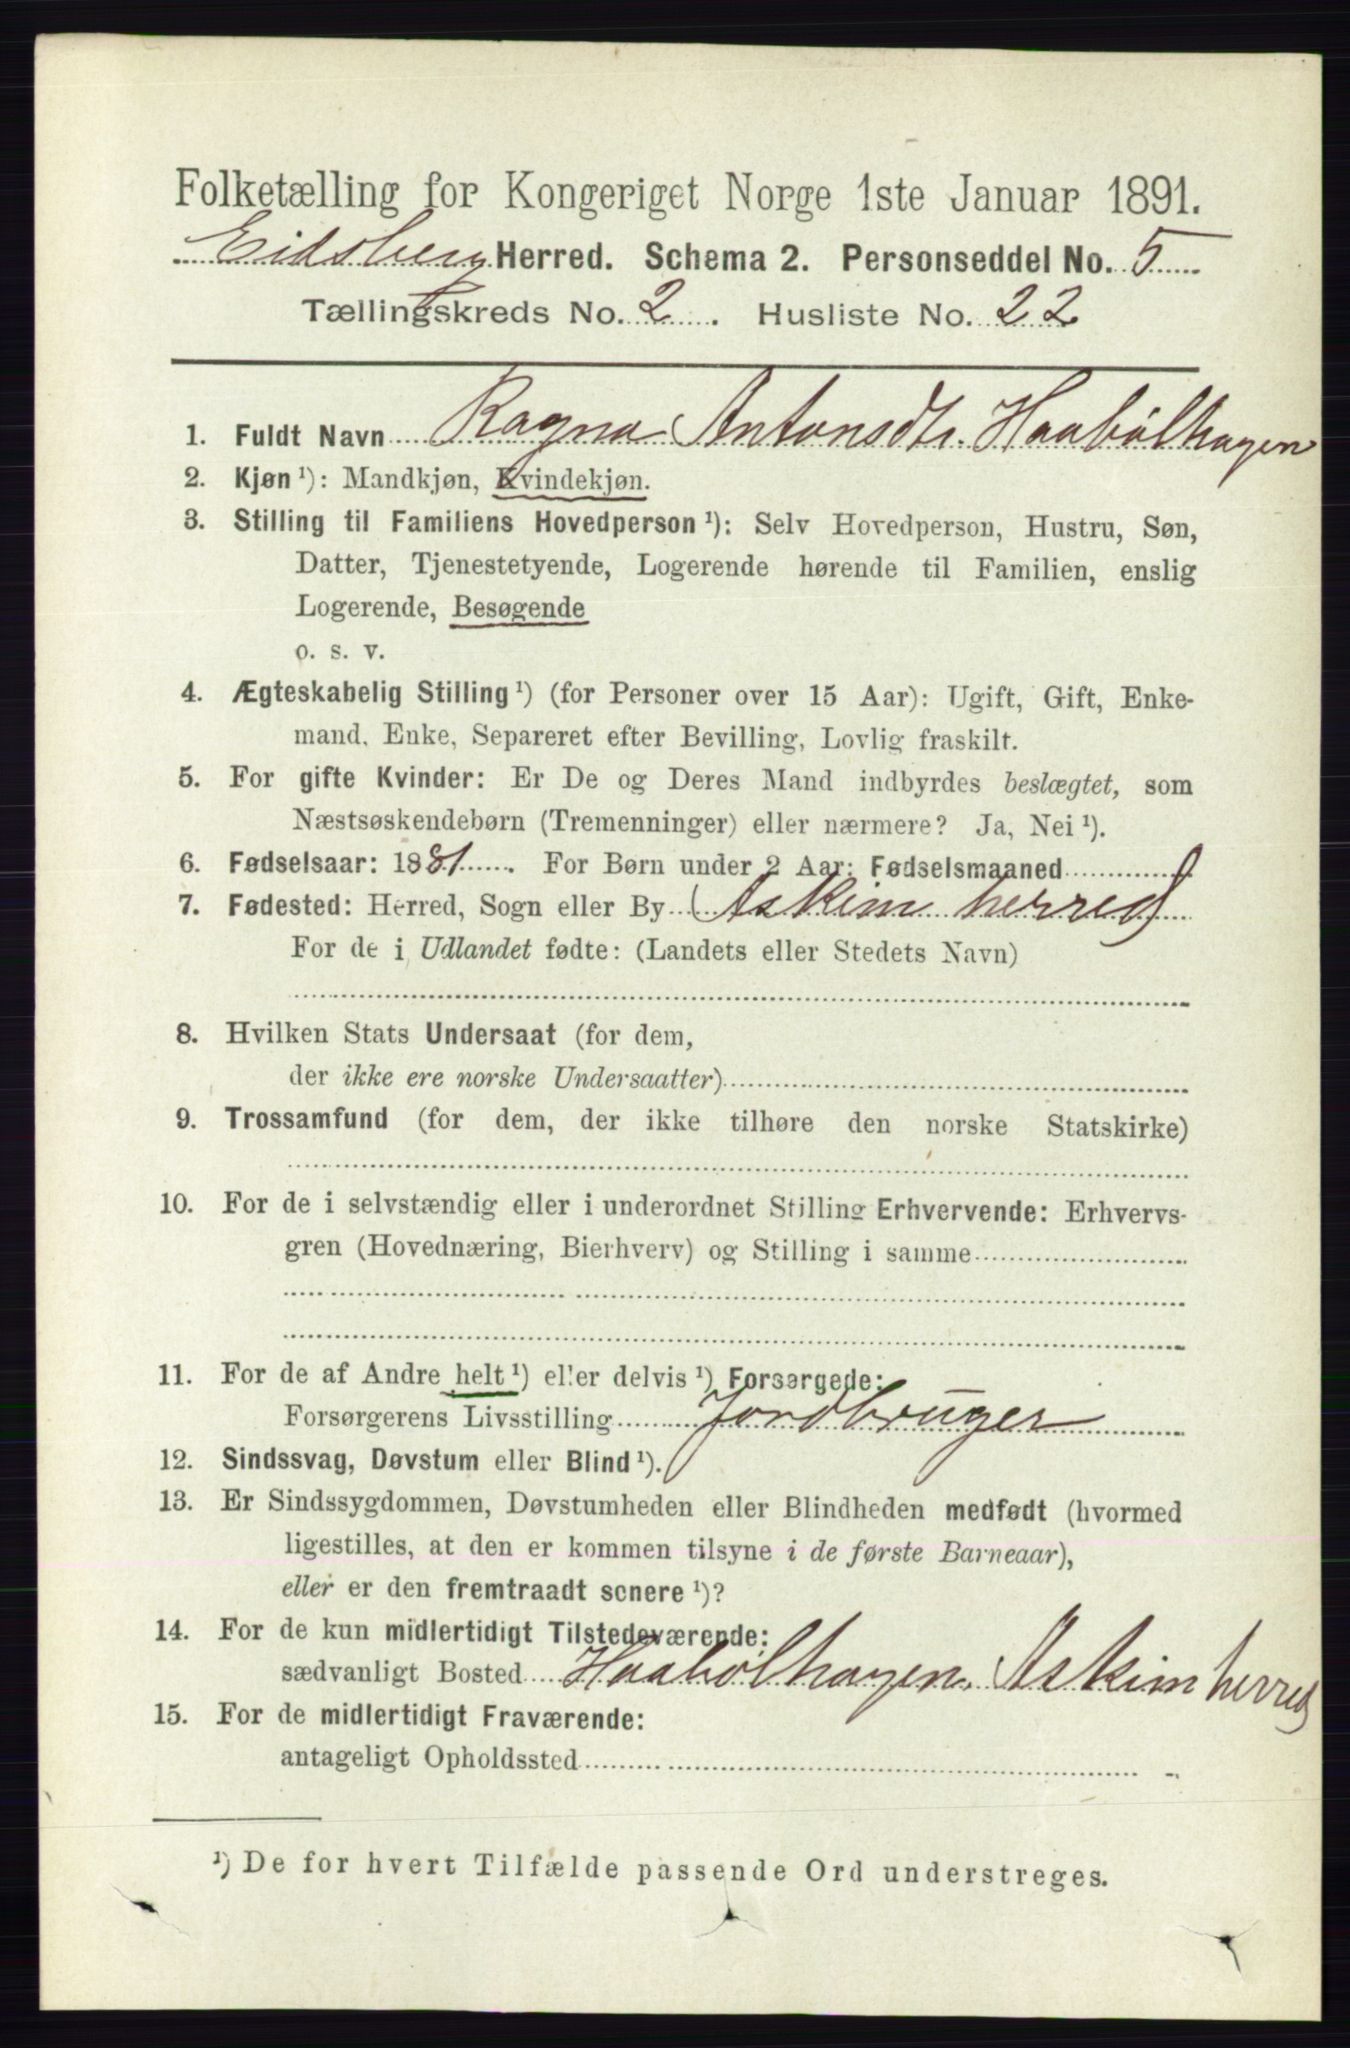 Folketælling for Kongeriget Norge 1ste Januar 1891.
Eidsberg Herred. Schema 2. Personseddel No. 5
Tællingskreds No. 2. Husliste No. 22
1. Fuldt Navn Ragna Antonsdtr. Haabølhagen
2. Kjøn ¹): Mandkjøn, Kvindekjøn.
3. Stilling til Familiens Hovedperson ¹): Selv Hovedperson, Hustru, Søn,
Datter, Tjenestetyende, Logerende hørende til Familien, enslig
Logerende, Besøgende
o. s. v.
4. Ægteskabelig Stilling ¹) (for Personer over 15 Aar): Ugift, Gift, Enke-
mand, Enke, Separeret efter Bevilling, Lovlig fraskilt.
5. For gifte Kvinder: Er De og Deres Mand indbyrdes beslægtet, som
Næstsøskendebørn (Tremenninger) eller nærmere? Ja, Nei ¹).
6. Fødselsaar: 1881. For Børn under 2 Aar: Fødselsmaaned
7. Fødested: Herred, Sogn eller By Askim herred
For de i Udlandet fødte: (Landets eller Stedets Navn)
8. Hvilken Stats Undersaat (for dem,
der ikke ere norske Undersaatter)
9. Trossamfund (for dem, der ikke tilhøre den norske Statskirke)
10. For de i selvstændig eller i underordnet Stilling Erhvervende: Erhvervs-
gren (Hovednæring, Bierhverv) og Stilling i samme
11. For de af Andre helt ¹) eller delvis ¹) Forsørgede:
Forsørgerens Livsstilling Jordbruger
12. Sindssvag, Døvstum eller Blind ¹).
13. Er Sindssygdommen, Døvstumheden eller Blindheden medfødt (hvormed
ligestilles, at den er kommen tilsyne i de første Barneaar),
eller er den fremtraadt senere ¹)?
14. For de kun midlertidigt Tilstedeværende:
sædvanligt Bosted Haabølhagen. Askim herred
15. For de midlertidigt Fraværende:
antageligt Opholdssted
¹) De for hvert Tilfælde passende Ord understreges.